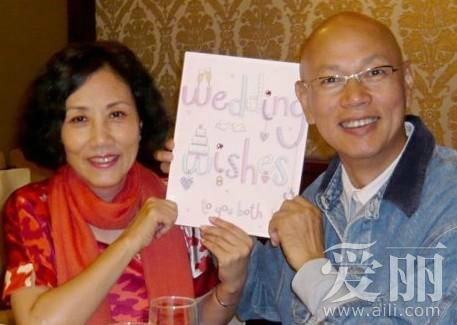 wedding
wishes
to you both
爱丽
www.aili.com